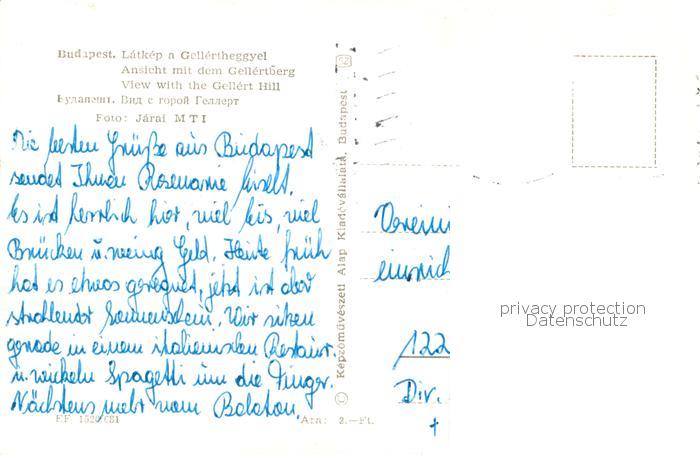 Budapest. Látkép a Gellértheggyel
Ansicht mit dem Gellértberg
View with the Gellért Hill
Будапешт. Вид с горой Геллерт
Foto: Járai MTI
Die besten Grüße aus Budapest
sendet Ihnen Rosemarie
Es ist herrlich hier, viel Eis, viel
Brücken u. wenig Geld. Heute früh
hat es etwas geregnet, jetzt ist aber
strahlender Sonnenschein. Wir sitzen
gerade in einem italienischen Restaur.
u. wickeln Spagetti um die Finger.
Nächstens mehr vom Balaton.
EF 1520/681
Ára: 2.—Ft.
© Képzőművészeti Alap Kiadóvállalata, Budapest
Verein
122
Div.
privacy protection
Datenschutz